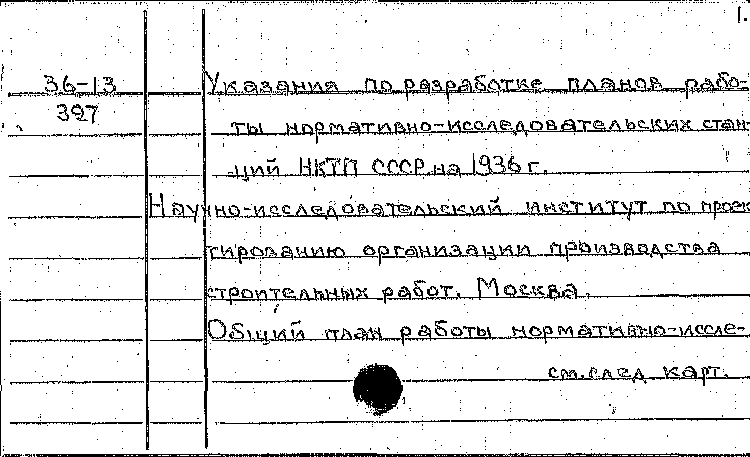 1.
36-13 Указания по разработке планов рабо-
397 ты нормативно-исследовательских стан-
ций НКТП СССР на 1936 г.
Научно-исследовательский институт по проек
тированию организации производства
строительных работ. Москва.
Общий план работы нормативно-иссле-
см. след карт.